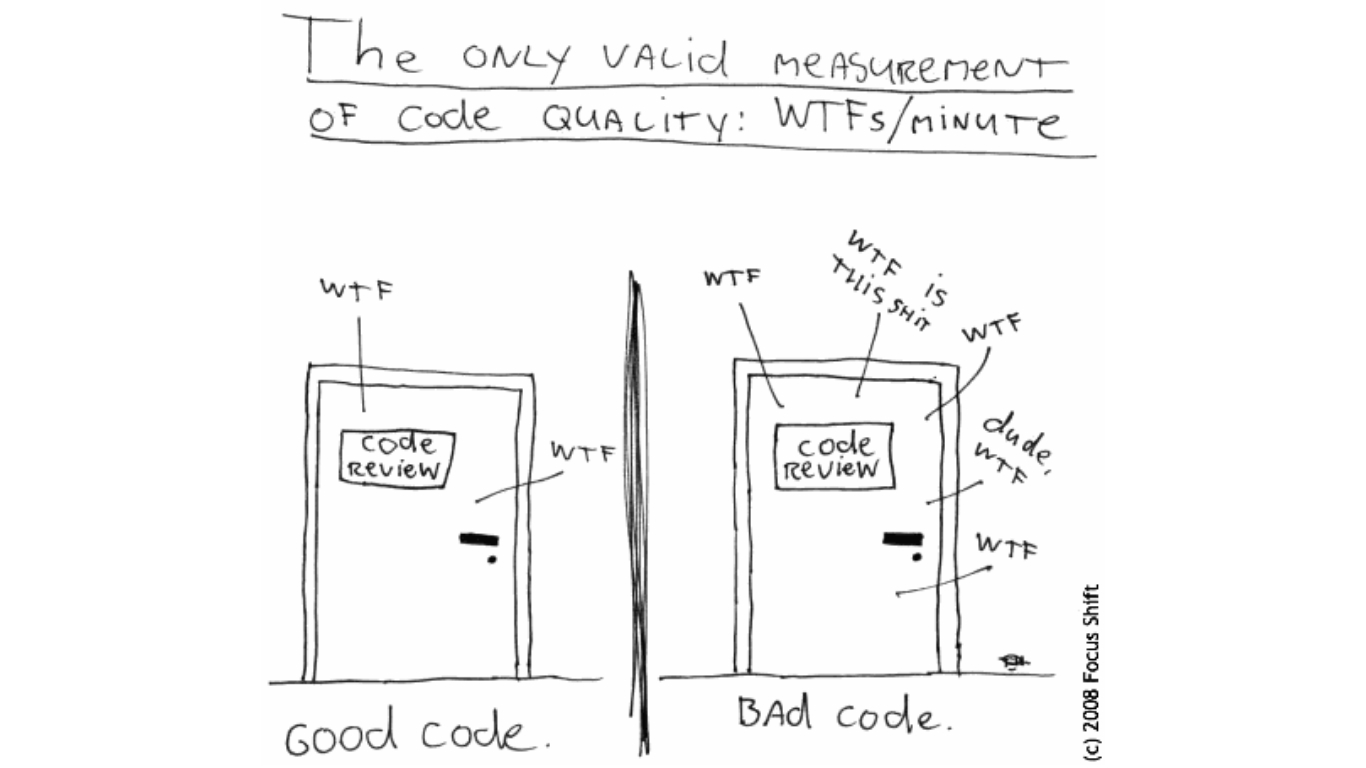 The ONLY VALid MEASUREMENT
OF Code QUALITY: WTFs/MINUTE
WTF
Code
REVIEW
WTF
GOOD Code.
WTF
WTF is
THIS SHIT
WTF
Code
REVIEW
dude,
WTF
WTF
BAd Code.
(c) 2008 Focus Shift